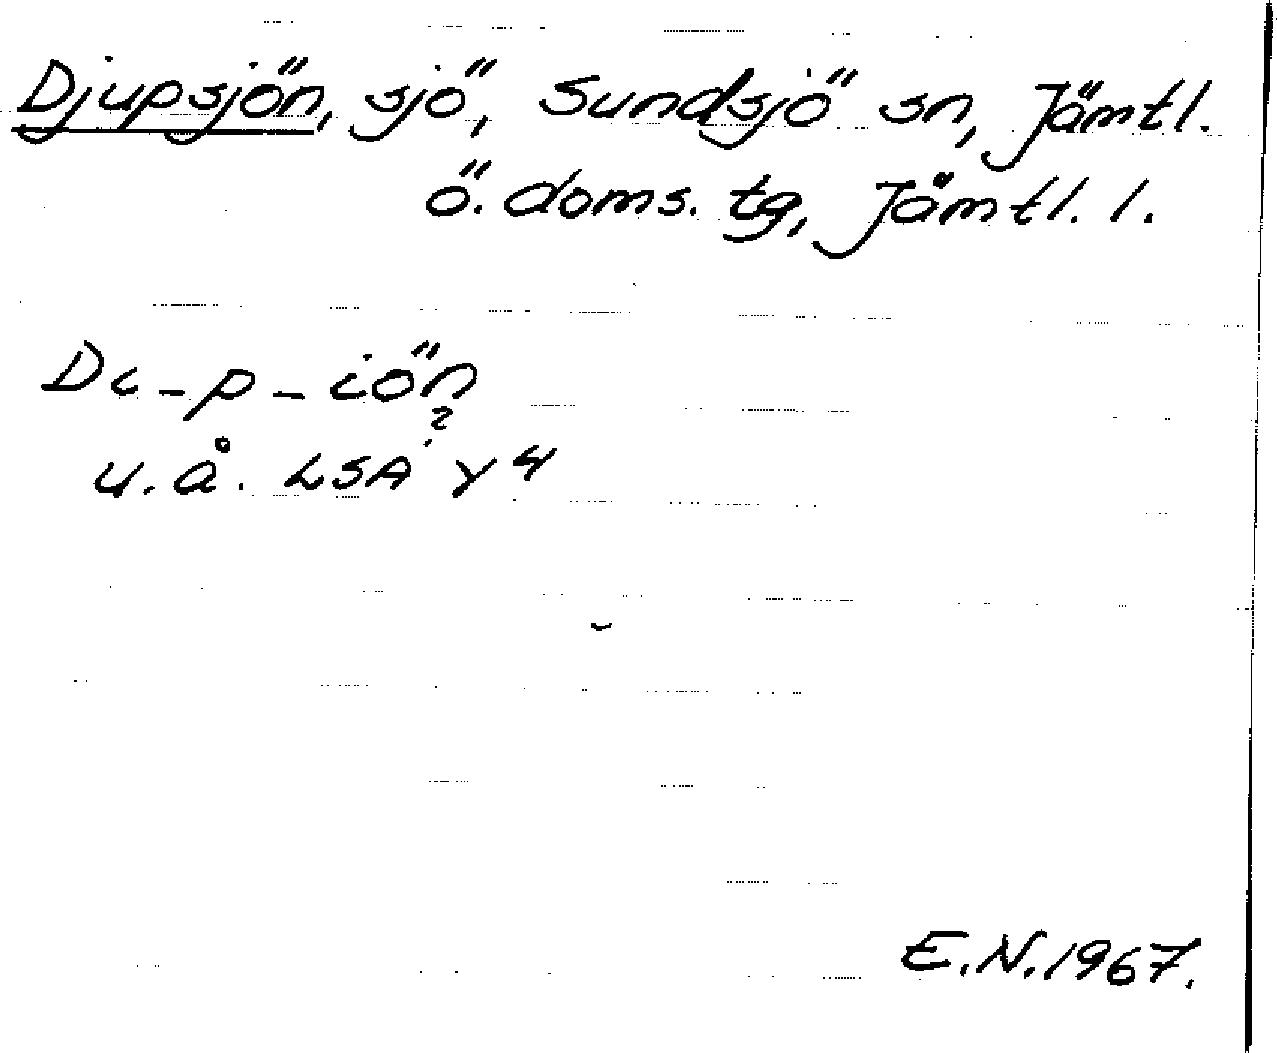 Djupsjön, sjö, Sundsjö sn, Jämtl.
ö. doms. tg, Jämtl. l.
Di-p-iön
?
u.å. LSA Y4
E.N. 1967.